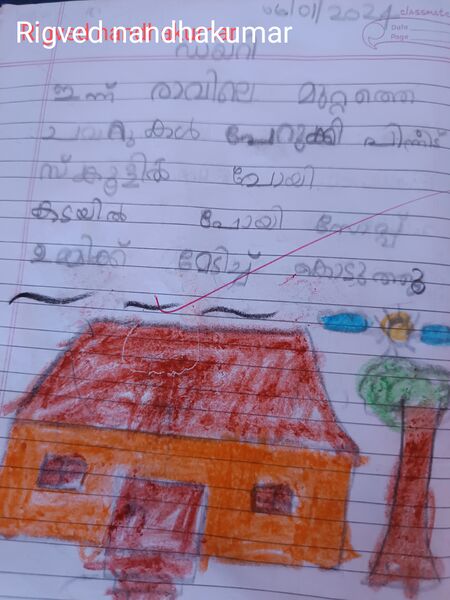 Rigved nandhakumar
06/01/2024
classmate
Date
Page
ഡയറി
ഇന്ന് രാവിലെ മുറ്റത്തെ
ചവറുകൾ പേറുക്കി പിന്നീട്
സ്കൂളിൽ പോയി
കടയിൽ പോയി സോപ്പ്
മേടിച്ച് കൊടുത്തു